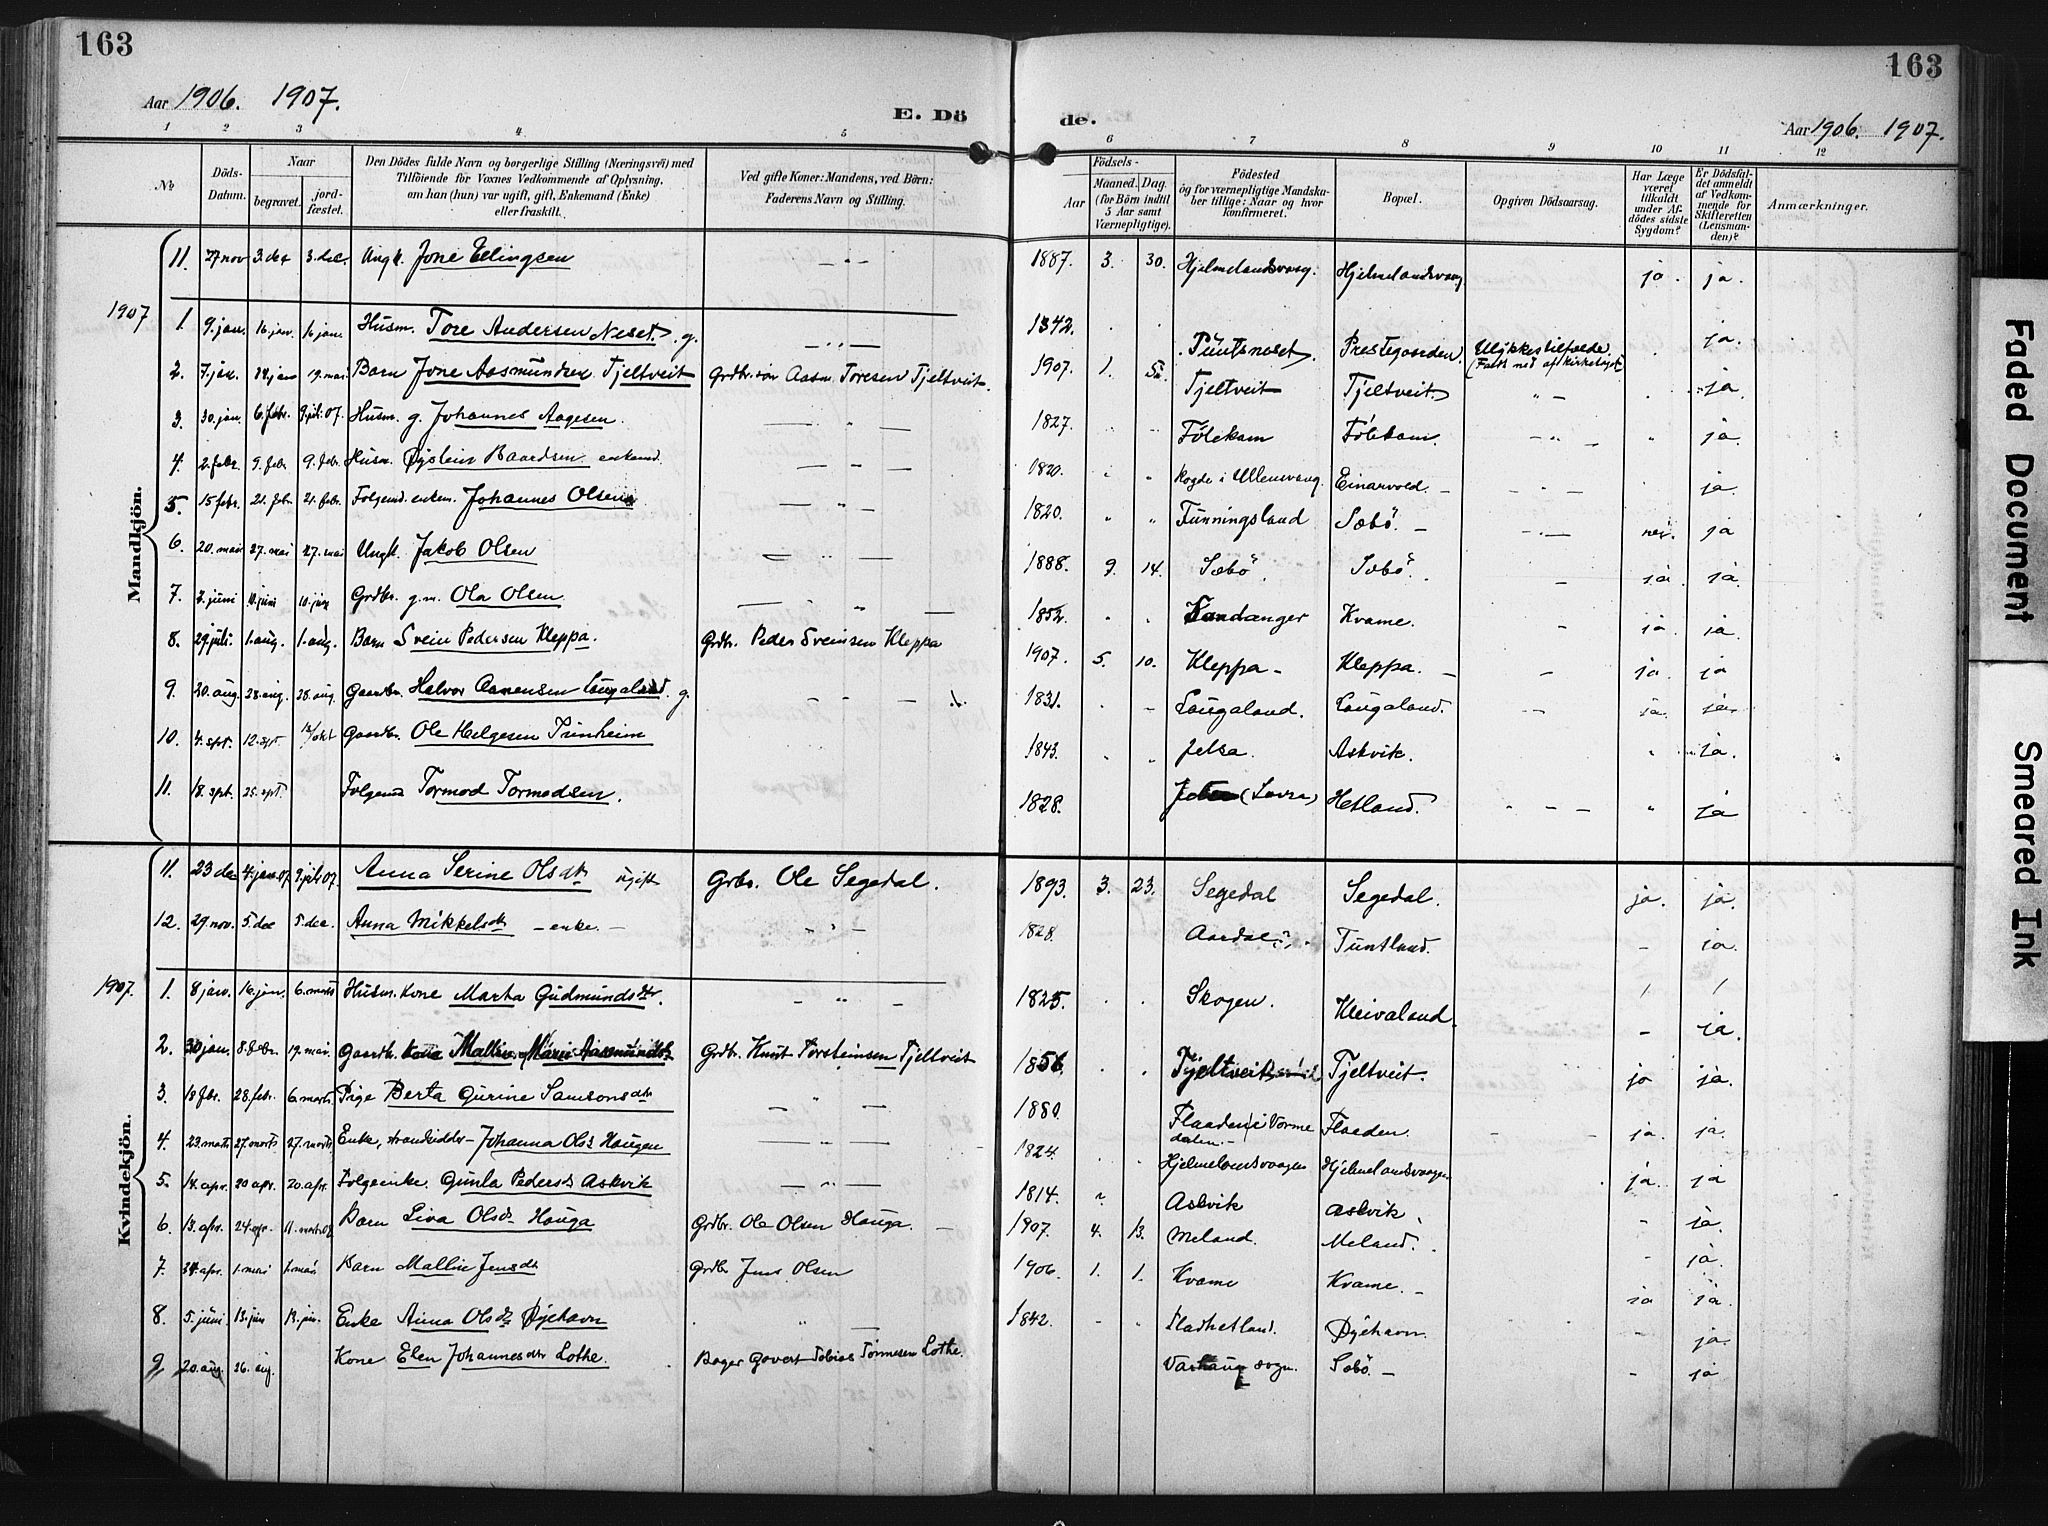 163
163
Aar 1906. 1907.
E. Dö
de.
Aar 1906. 1907.
1 2 3 4 5 6 7 8 9 10 11 12
№
Döds-Datum.
Naar
begravet.
jord-fæstet.
Den Dödes fulde Navn og borgerlige Stilling (Næringsvei) med
Tilföiende for Voxnes Vedkommende af Oplysning,
om han (hun) var ugift, gift, Enkemand (Enke)
eller fraskilt.
Ved gifte Koner: Mandens, ved Börn:
Faderens Navn og Stilling.
Födsels-
Aar
Maaned. Dag.
(for Börn indtil
5 Aar samt
Værnepligtige).
Födested
og for værnepligtige Mandska-
ber tillige: Naar og hvor
konfirmeret.
Bopæl.
Opgiven Dödsaarsag.
Har Læge
været
tilkaldt
under Af-
dödes sidste
Sygdom?
Er Dödsfal-
det anmeldt
af Vedkom-
mende for
Skifteretten
(Lensman-
den)?
Anmærkninger.
Mandkjön.
11. 27 nov 3. dec 3. dec. Ungk. Jone Ellingsen 1887. 3. 30. Hjelmelandsvaag. Hjelmelandsvaag ja. ja.
1907
1. 9. jan. 16. jan. 16 jan. Husm. Tore Andersen Neset. g. 1842. Puntsneset. Prestegaarden. Ulykkestilfælde. ja.
2. 7. jan. Barn Jone Aasmundsen Tjeltveit Grdbr. søn Aasm Toresen Tjeltveit. 1907. 1. 5. Tjeltveit Tjeltveit. ja.
3. 30. jan. 6. febr. 9. juli. 07. Husm. g. Johannes Aagesen. 1827. ja.
4. 2. febr. 9. febr. 9. febr. Husm. Øystein Baardsen enkemd. 1820. i Ullensvang. Einarvold. ja.
5. 15 febr. 21. febr. 21. febr. Folgemd. enkem. Johannes Olsen 1820. Funningsland Sæbö. nei. ja
6. 20. mai 27. mai 27. mai Ungk. Jakob Olsen 1888. 9. 14. Sæbö. Sæbö. ja. ja.
7. juni juni 10. jun Grdbr. g.m. Ola Olsen 1852. Kvame. ja. ja.
8. 29. juli. 1. aug. 1. aug. Barn Svein Pedersen Kleppa. Grdbr. Peder Sveinsen Kleppa 1907. 5. 10. Kleppa Kleppa. ja. ja
9. 20. aug. 28. aug. 28. aug. Gaardbr. Halvor Aanensen Laugaland. g. 1831. Laugaland. Laugaland. ja. ja.
10. 4. spt. 12. spt. 12/okt Gaardbr. Ole Helgesen 1843. Jelsa. Askvik. ja.
11. 18. spt. 25. spt. Folgemd Tormod Tormodsen. 1828. Hetland. ja
Kvindekjön.
11. 23 dec 4. jan 07 9. juli 07. Anna Serine Olsdtr ugift Grbr. Ole Segedal. 1893. 3. 23. Segedal Segedal. ja. ja.
12. 29. nov. 5. dec 5. dec. Anna Mikkelsdtr enke. 1828. Aardal. Tuntland. ja.
1907.
1. 8 jan. 16. jan. 6. marts Husm. Kone Marta Gudmundsdtr. 1825. Skogen. Kleivaland. ja.
2. 30 jan. 8. febr. 19. mai. Gaardbr. Kone Mallin Marie Aasmundsdtr Grdbr. Knut Torsteinsen Tjeltveit 1856. Tjeltveit Tjeltveit. ja ja.
3. 18 fbr. 28. febr. 6. marts Pige Berta Gurine Samsonsdtr 1880. Flaaden i Vorme dalen. Flaeden. ja. ja.
4. 23. marts 27. marts 27. marts. Enke, strandsidder Johanna Olsd. Haugen 1824. Hjelmelandsvaagen Hjelmelandsvaagen ja. ja
5. 14. apr. 20 apr. 20. apr. Folgeenke. Gunla Pedersd Askvik 1814. Askvik Askvik. ja.
6. 13. apr. 24. apr. 11. marts 08. Barn Liva Olsdtr Hauga Grdbr. Ole Olsen Hauga. 1907. 4. 13. Meland. Meland. ja.
7. 24. apr. 1. mai 1. mai Barn Mallin Jensdtr Grdbr Jens Olsen 1906. 1. 1. Kvame Kvame. ja ja.
8. 5. juni 13. jun 13. jun. Enke Anna Olsdtr Øyehavn 1842. Fladhetland. Øyehavn. ja.
9. 20. aug 26. aug. Kone Elen Johannesdtr Lothe. Bager Govert Tobias Tönnesen Lothe. Varhaug sogn. Sæbö. ja
Faded Document
Smeared Ink